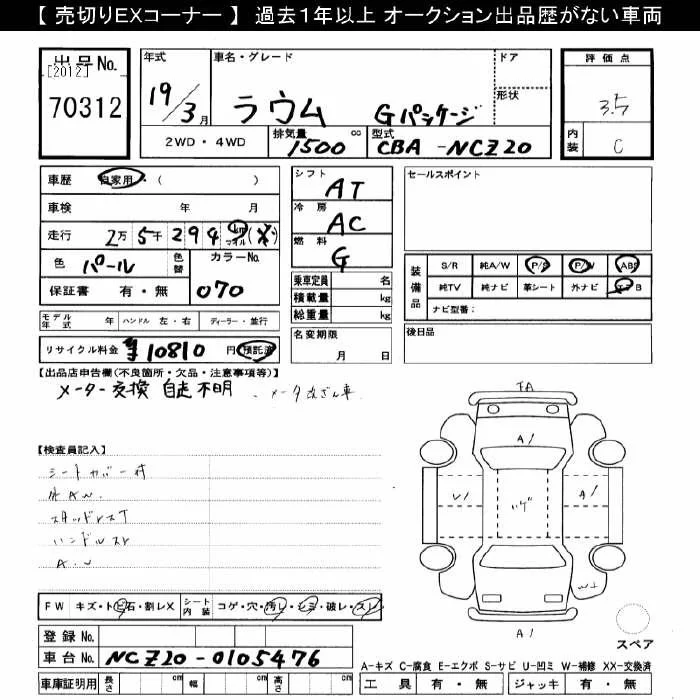 【 売切りEXコーナー 】 過去1年以上 オークション出品歴がない車両
出品No.
[2012]
70312
年式
19/3月
車名・グレード
ラウム Gパッケージ
ドア
形状
2WD・4WD
排気量
1500 cc
型式
CBA-NCZ20
評価点
3.5
内装
C
車歴 自家用・( )
車検 年 月
走行 2万 5千 2 9 4 km マイル (メ)
色 パール
色替
カラーNo.
070
保証書 有・無
モデル年式 年 ハンドル 左・右 ディーラー・並行
リサイクル料金 ¥10810 円 預託済
シフト AT
冷房 AC
燃料 G
乗車定員 名
積載量 kg
総重量 kg
名変期限
月 日
セールスポイント
装備品
S/R 純A/W P/S P/W ABS
純TV 純ナビ 革シート 外ナビ エアB
ナビ型番:
後日品
【出品店申告欄(不良箇所・欠品・注意事項等)】
メーター交換 自走不明 メータ改ざん車
【検査員記入】
シートカバー付
外AW
スタッドレス
ハンドルスレ
A.W
FW キズ・トビ石・割レX
シート内装 コゲ・穴・汚レ・シミ・破レ・スレ
登録No.
車台No. NCZ20-0105476
車庫証明用 長さ cm 幅 cm 高さ cm
TA
A1
A1
A1
スペア
A-キズ C-腐食 E-エクボ S-サビ U-凹ミ W-補修 XX-交換済
工具 有・無 ジャッキ 有・無